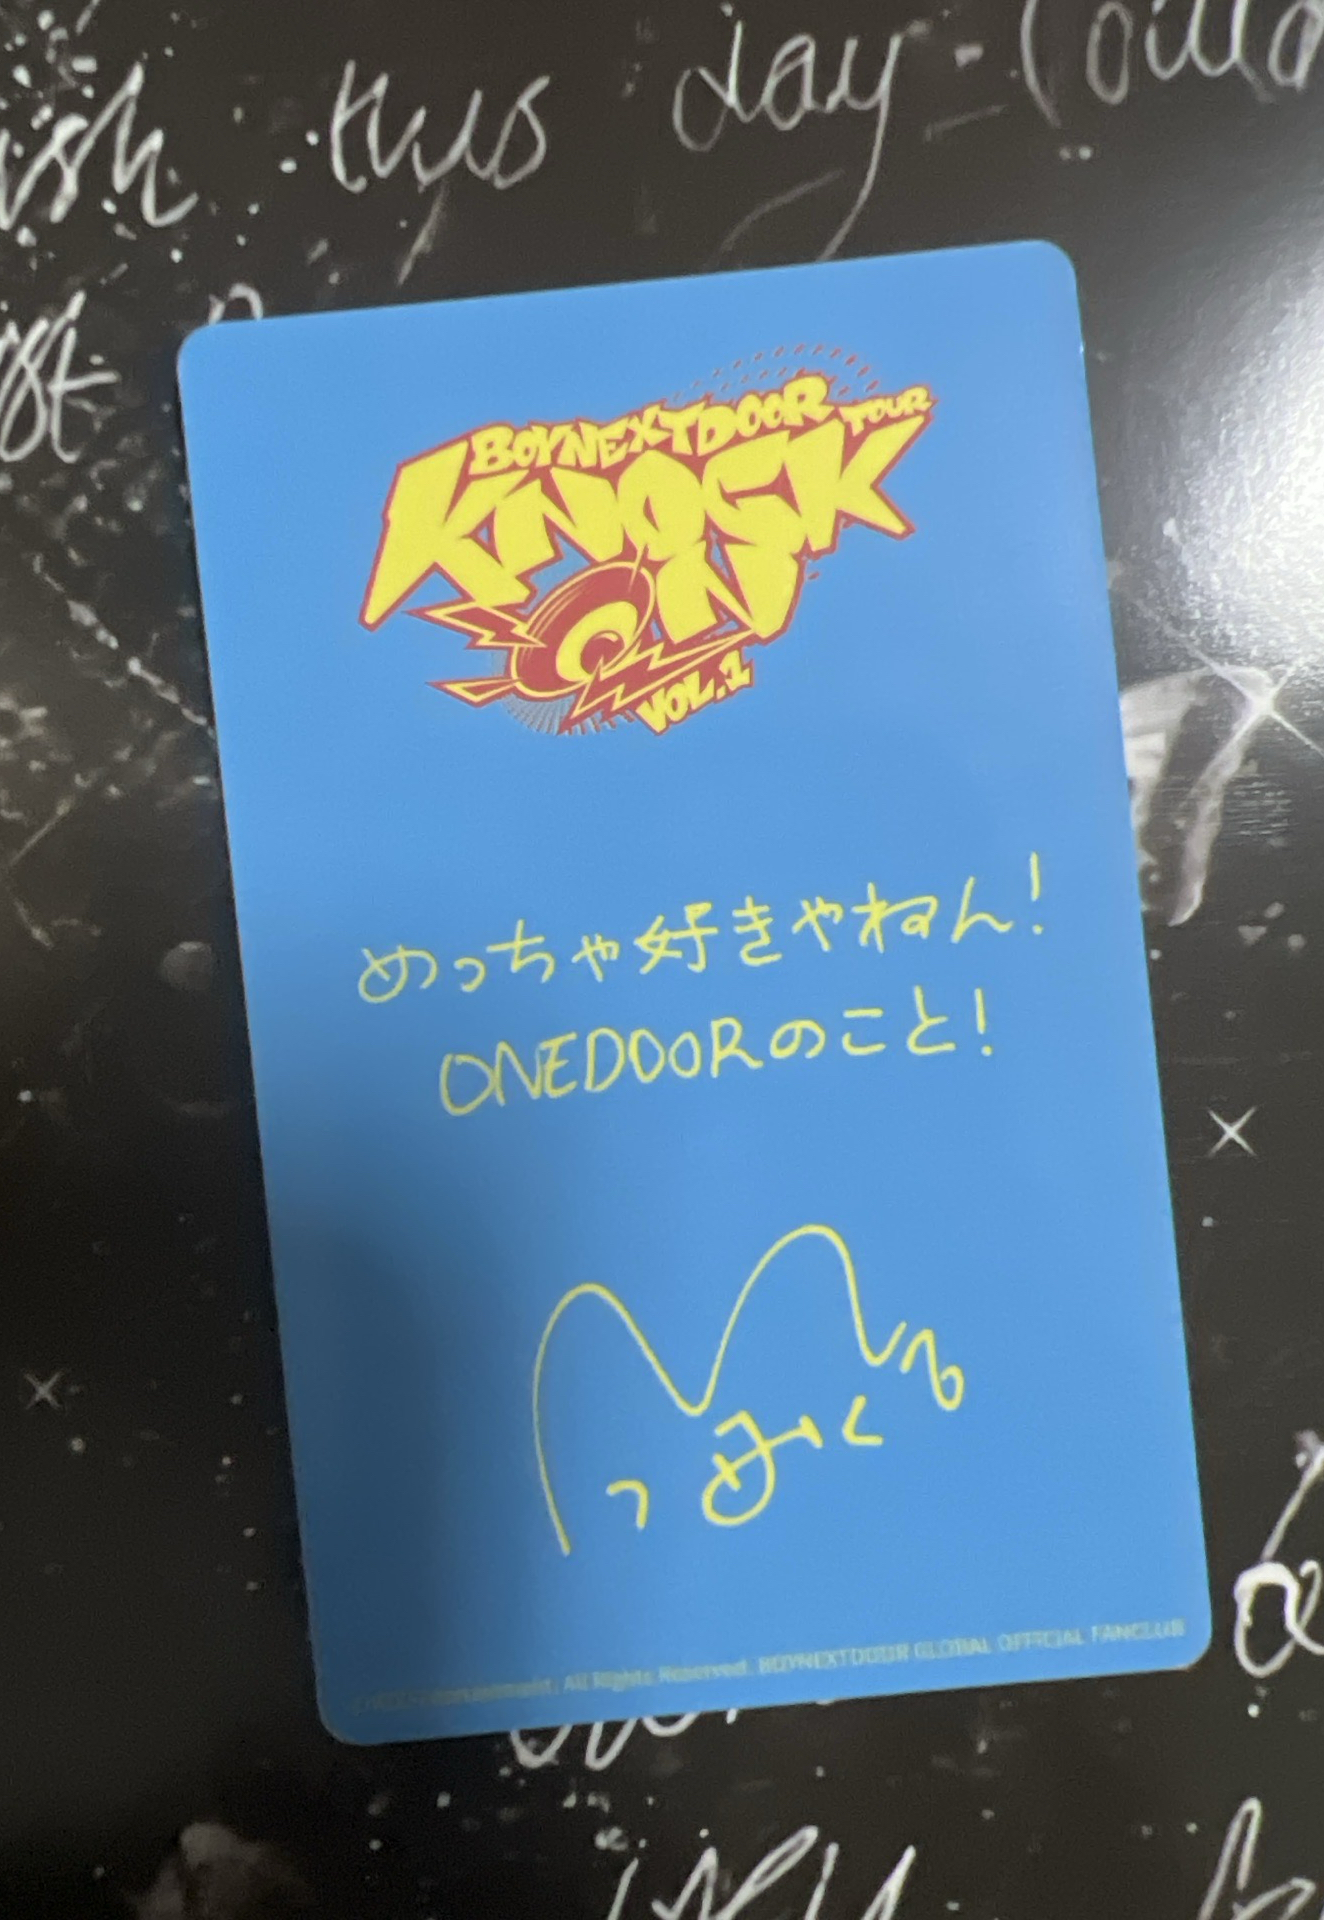 ish this day. Could
BOYNEXTDOOR TOUR
KNOCK
ON
VOL.1
めっちゃ好きやねん!
ONEDOORのこと!
Entertainment. All Rights Reserved. BOYNEXTDOOR GLOBAL OFFICIAL FANCLUB